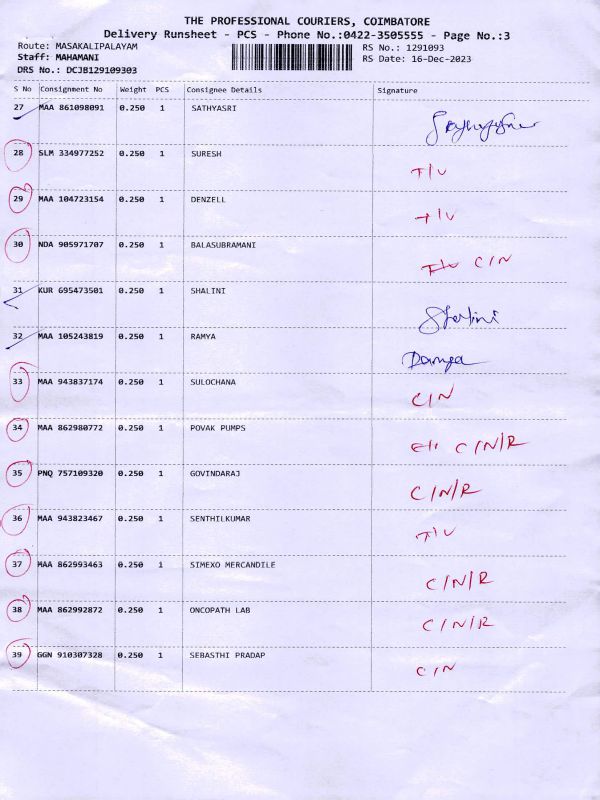 THE PROFESSIONAL COURIERS, COIMBATORE
Delivery Runsheet - PCS - Phone No.:0422-3505555 - Page No.:3
Route: MASAKALIPALAYAM RS No.: 1291093
Staff: MAHAMANI RS Date: 16-Dec-2023
DRS No.: DCJB129109303
S No Consignment No Weight PCS Consignee Details Signature
27 MAA 861098091 0.250 1 SATHYASRI
28 SLM 334977252 0.250 1 SURESH
T/U
29 MAA 104723154 0.250 1 DENZELL
T/U
30 NDA 905971707 0.250 1 BALASUBRAMANI
C/N
31 KUR 695473501 0.250 1 SHALINI
Shalini
32 MAA 105243819 0.250 1 RAMYA
33 MAA 943837174 0.250 1 SULOCHANA
C/N
34 MAA 862980772 0.250 1 POVAK PUMPS
C/N/R
35 PNQ 757109320 0.250 1 GOVINDARAJ
C/N/R
36 MAA 943823467 0.250 1 SENTHILKUMAR
T/U
37 MAA 862993463 0.250 1 SIMEXO MERCANDILE
C/N/R
38 MAA 862992872 0.250 1 ONCOPATH LAB
C/N/R
39 GGN 910307328 0.250 1 SEBASTHI PRADAP
C/N